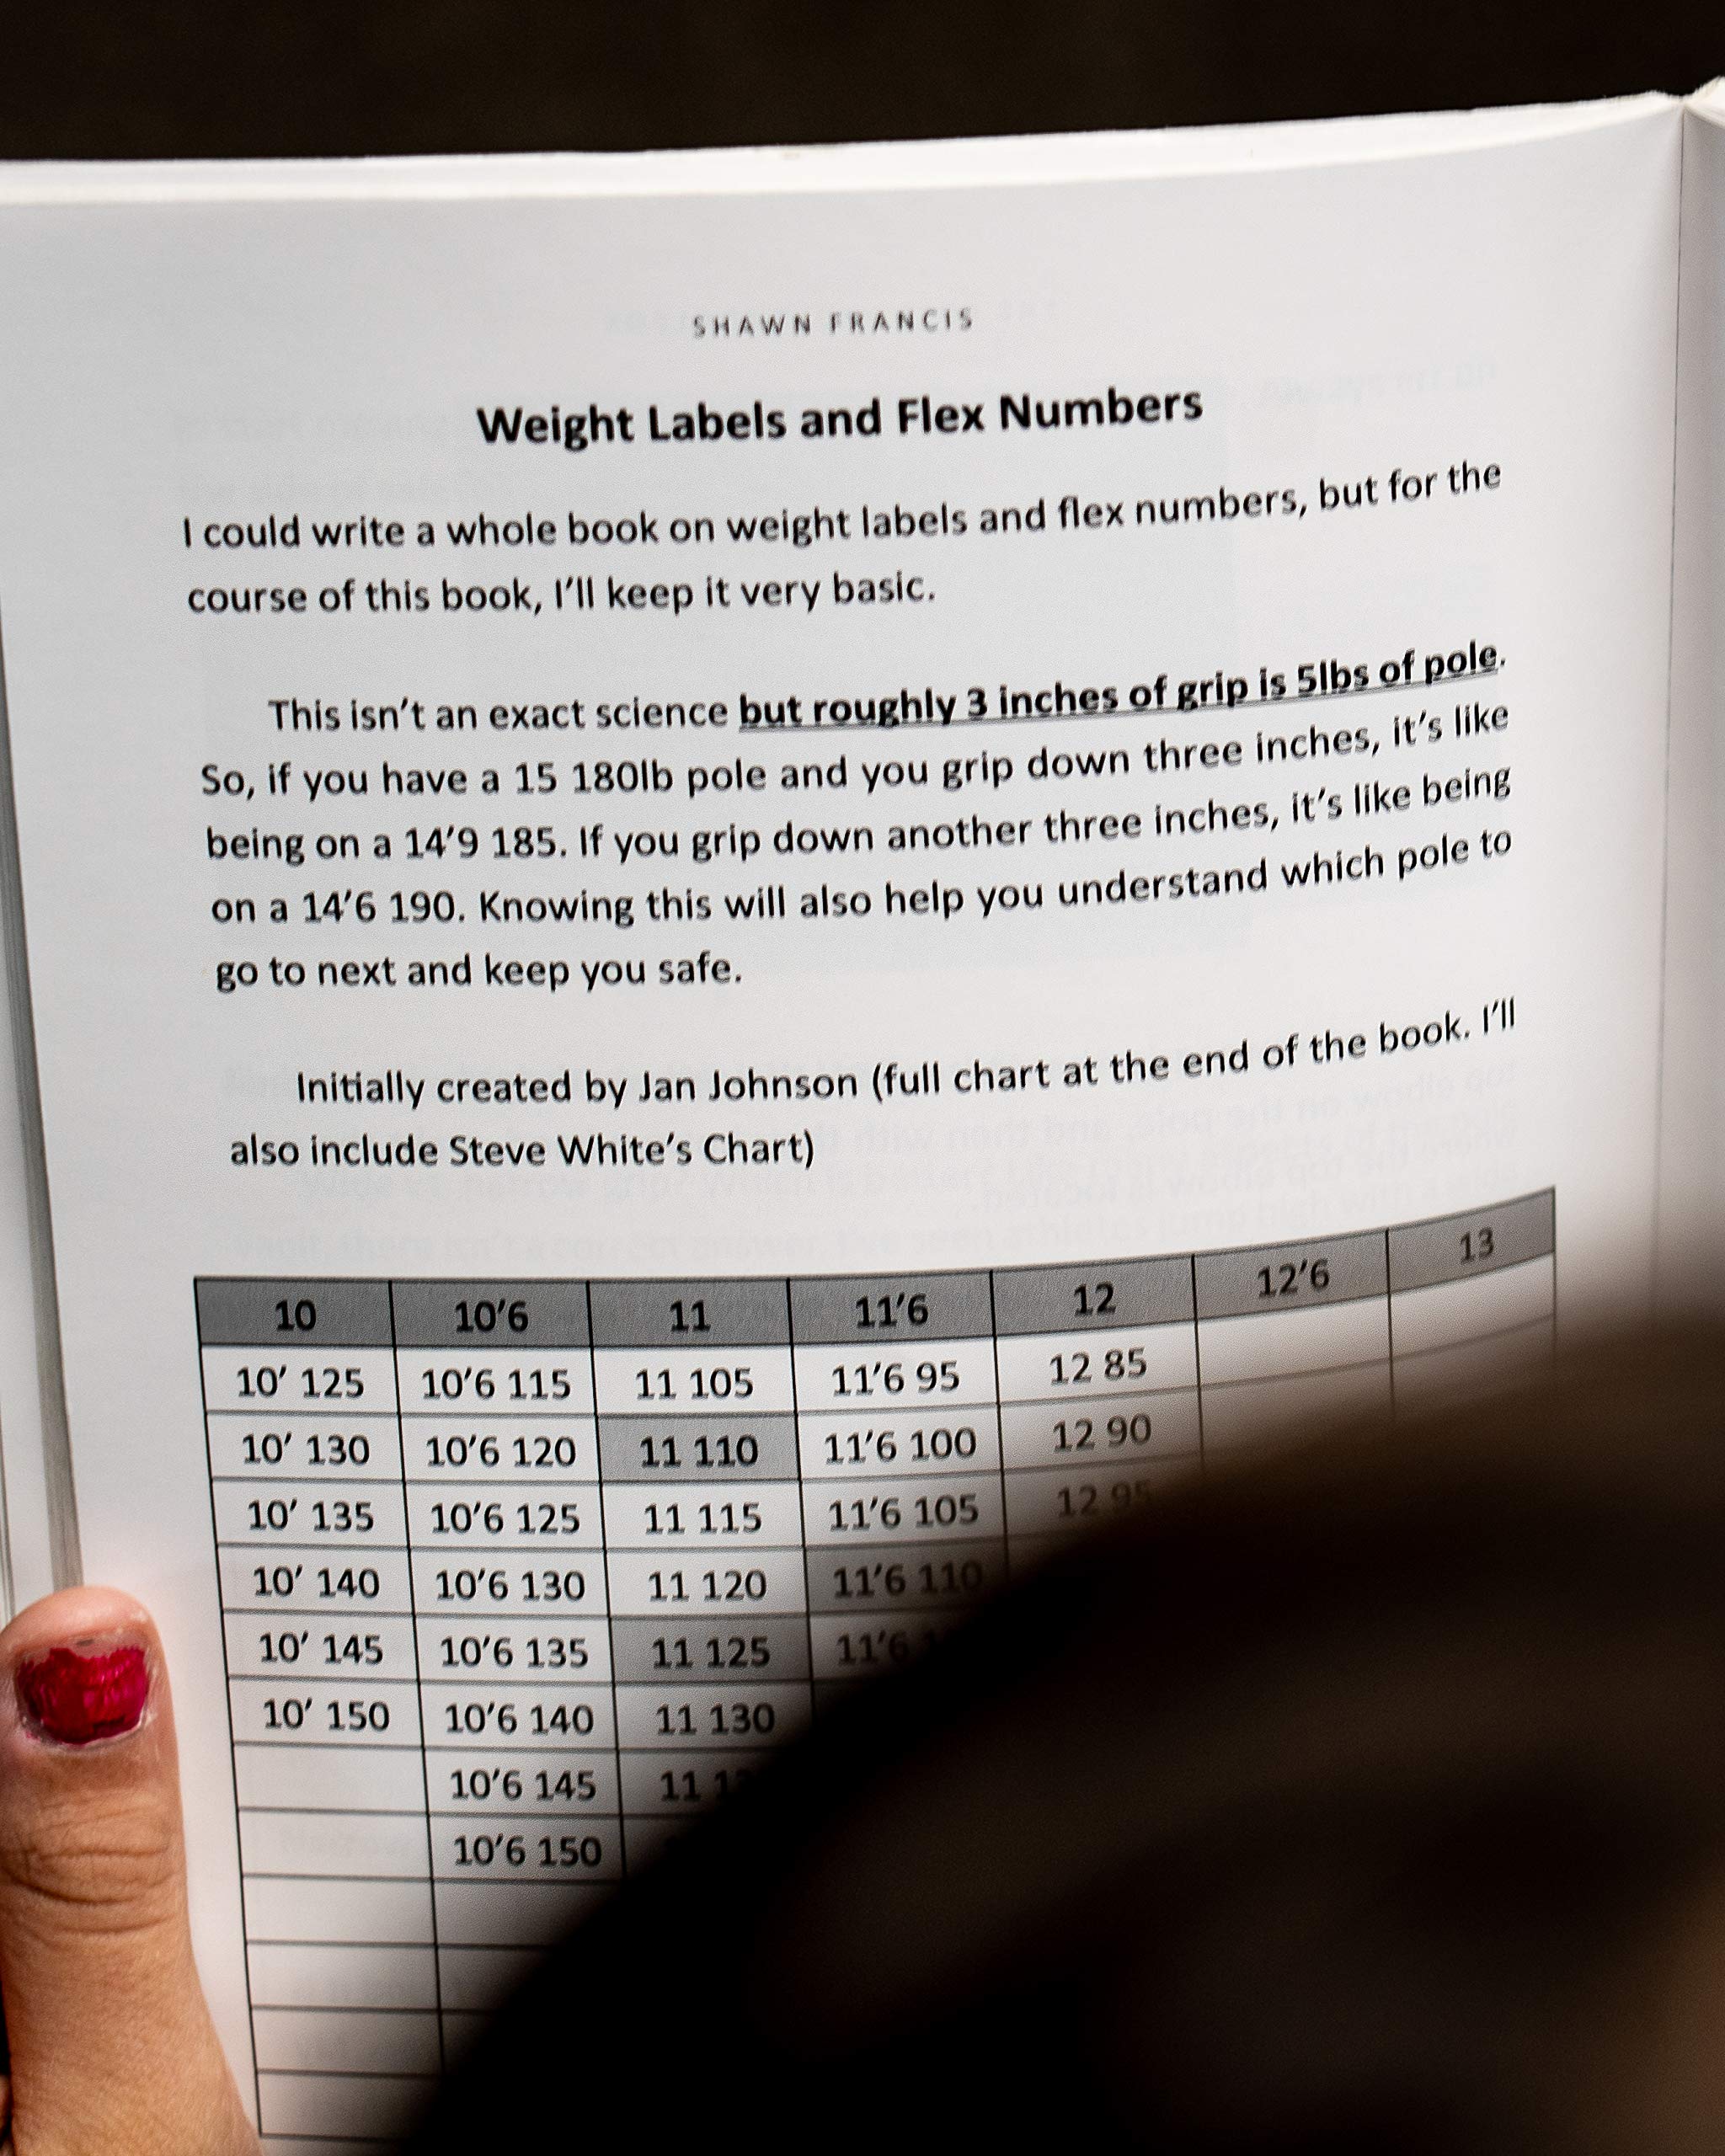 SHAWN FRANCIS
Weight Labels and Flex Numbers
I could write a whole book on weight labels and flex numbers, but for the
course of this book, I’ll keep it very basic.
This isn’t an exact science but roughly 3 inches of grip is 5lbs of pole.
So, if you have a 15 180lb pole and you grip down three inches, it’s like
being on a 14’9 185. If you grip down another three inches, it’s like being
on a 14’6 190. Knowing this will also help you understand which pole to
go to next and keep you safe.
Initially created by Jan Johnson (full chart at the end of the book. I’ll
also include Steve White’s Chart)
10 10’6 11 11’6 12 12’6 13
10’ 125 10’6 115 11 105 11’6 95 12 85
10’ 130 10’6 120 11 110 11’6 100 12 90
10’ 135 10’6 125 11 115 11’6 105 12 95
10’ 140 10’6 130 11 120 11’6 110
10’ 145 10’6 135 11 125 11’6
10’ 150 10’6 140 11 130
10’6 145 11
10’6 150